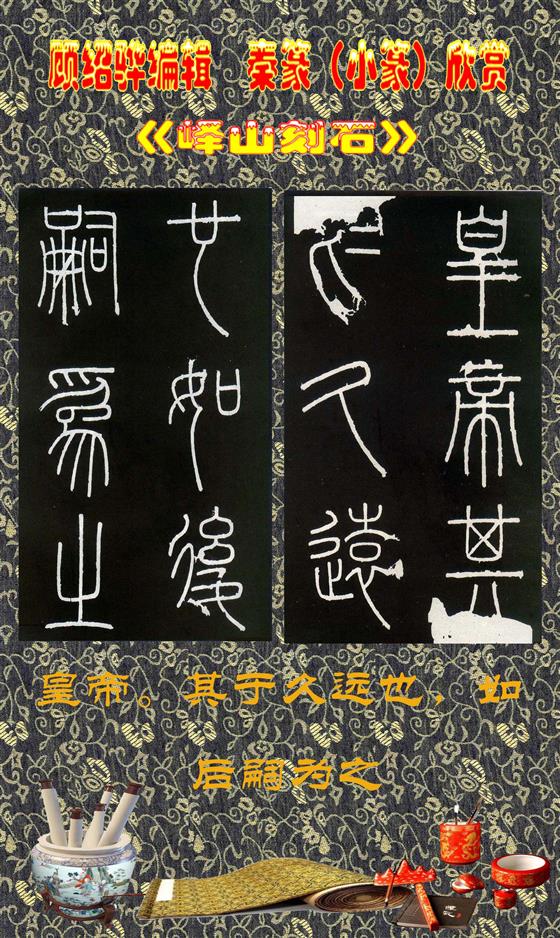 顾绍骅编辑 秦篆（小篆）欣赏
《峄山刻石》
皇帝其
於久遠
也如後
嗣爲之
皇帝。其于久远也，如
后嗣为之